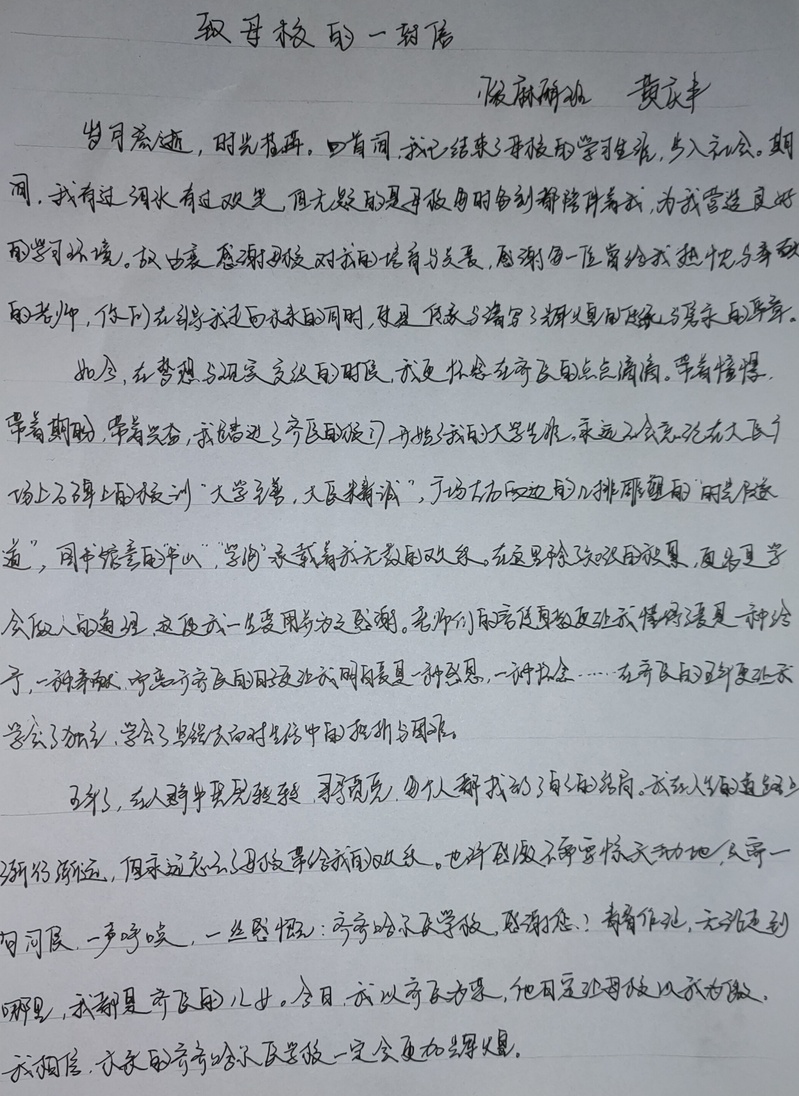 致母校的一封信
麻醉班 黄庆丰
岁月流逝，时光荏苒。回首间，我已结束了母校的学习生涯，步入社会。期
间，我有过泪水有过欢笑，但无疑的是母校每时每刻都陪伴着我，为我营造良好
的学习环境。故由衷感谢母校对我的培育与关爱，感谢每一位曾给我热忱与奉献
的老师，你们在引导我走向未来的同时，更是传承与谱写了辉煌的传承与隽永的乐章。
如今，在梦想与现实交织的时段，我更怀念在齐医的点点滴滴。带着憧憬，
带着期盼，带着兴奋，我踏进了齐医的校门，开始了我的大学生涯。永远不会忘记在大医广
场上石碑上的校训“大学至善，大医精诚”，广场左右两边的几排雕塑的“时光隧
道”，图书馆旁的“书山”“学海”承载着我无数的欢乐。在这里除了知识的积累，更多是学
会做人的道理，这使我一生要用努力之感谢。老师们的言传身教更让我懂得爱是一种给
予，一种奉献，离齐医的日子更让我明白爱是一种感恩，一种怀念……在齐医的五年更让我
学会了独立，学会了坚强去面对生活中的挫折与困难。
五年了，在人群中兜兜转转，寻寻觅觅，每个人都找到了自己的结局。我在人生的道路上
渐行渐远，但永远忘不了母校带给我的欢乐。也许感激不需要惊天动地，只需一
句问候，一声呼唤，一丝感慨：齐齐哈尔医学院，感谢您！青春作证，无论走到
哪里，我都是齐医的儿女。今日，我以齐医为荣，他日定让母校以我为傲，
我相信，未来的齐齐哈尔医学院一定会更加辉煌。